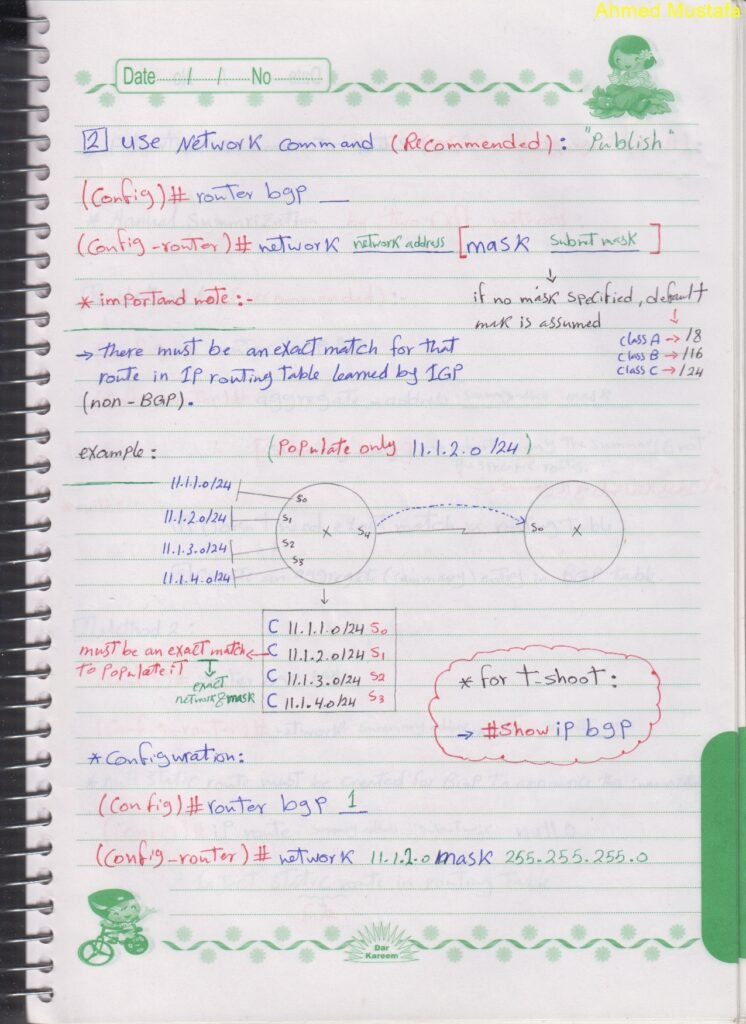 Ahmed Mustafa
Date / / No
2 use Network command (Recommended): "Publish"
(Config)# router bgp __
(Config-router)# network network address [mask subnet mask]
if no mask specified, default
mask is assumed
class A → /8
class B → /16
class C → /24
* importand note :-
→ there must be an exact match for that
route in IP routing table learned by IGP
(non-BGP).
example: (Populate only 11.1.2.0/24)
11.1.1.0/24
11.1.2.0/24
11.1.3.0/24
11.1.4.0/24
S0
S1
S2
S3
X
S4
S0
X
C 11.1.1.0/24 S0
C 11.1.2.0/24 S1
C 11.1.3.0/24 S2
C 11.1.4.0/24 S3
must be an exact match
to populate it
exact
network & mask
* for t-shoot:
→ #show ip bgp
* Configuration:
(Config)# router bgp 1
(Config-router)# network 11.1.2.0 mask 255.255.255.0
Dar
Kareem